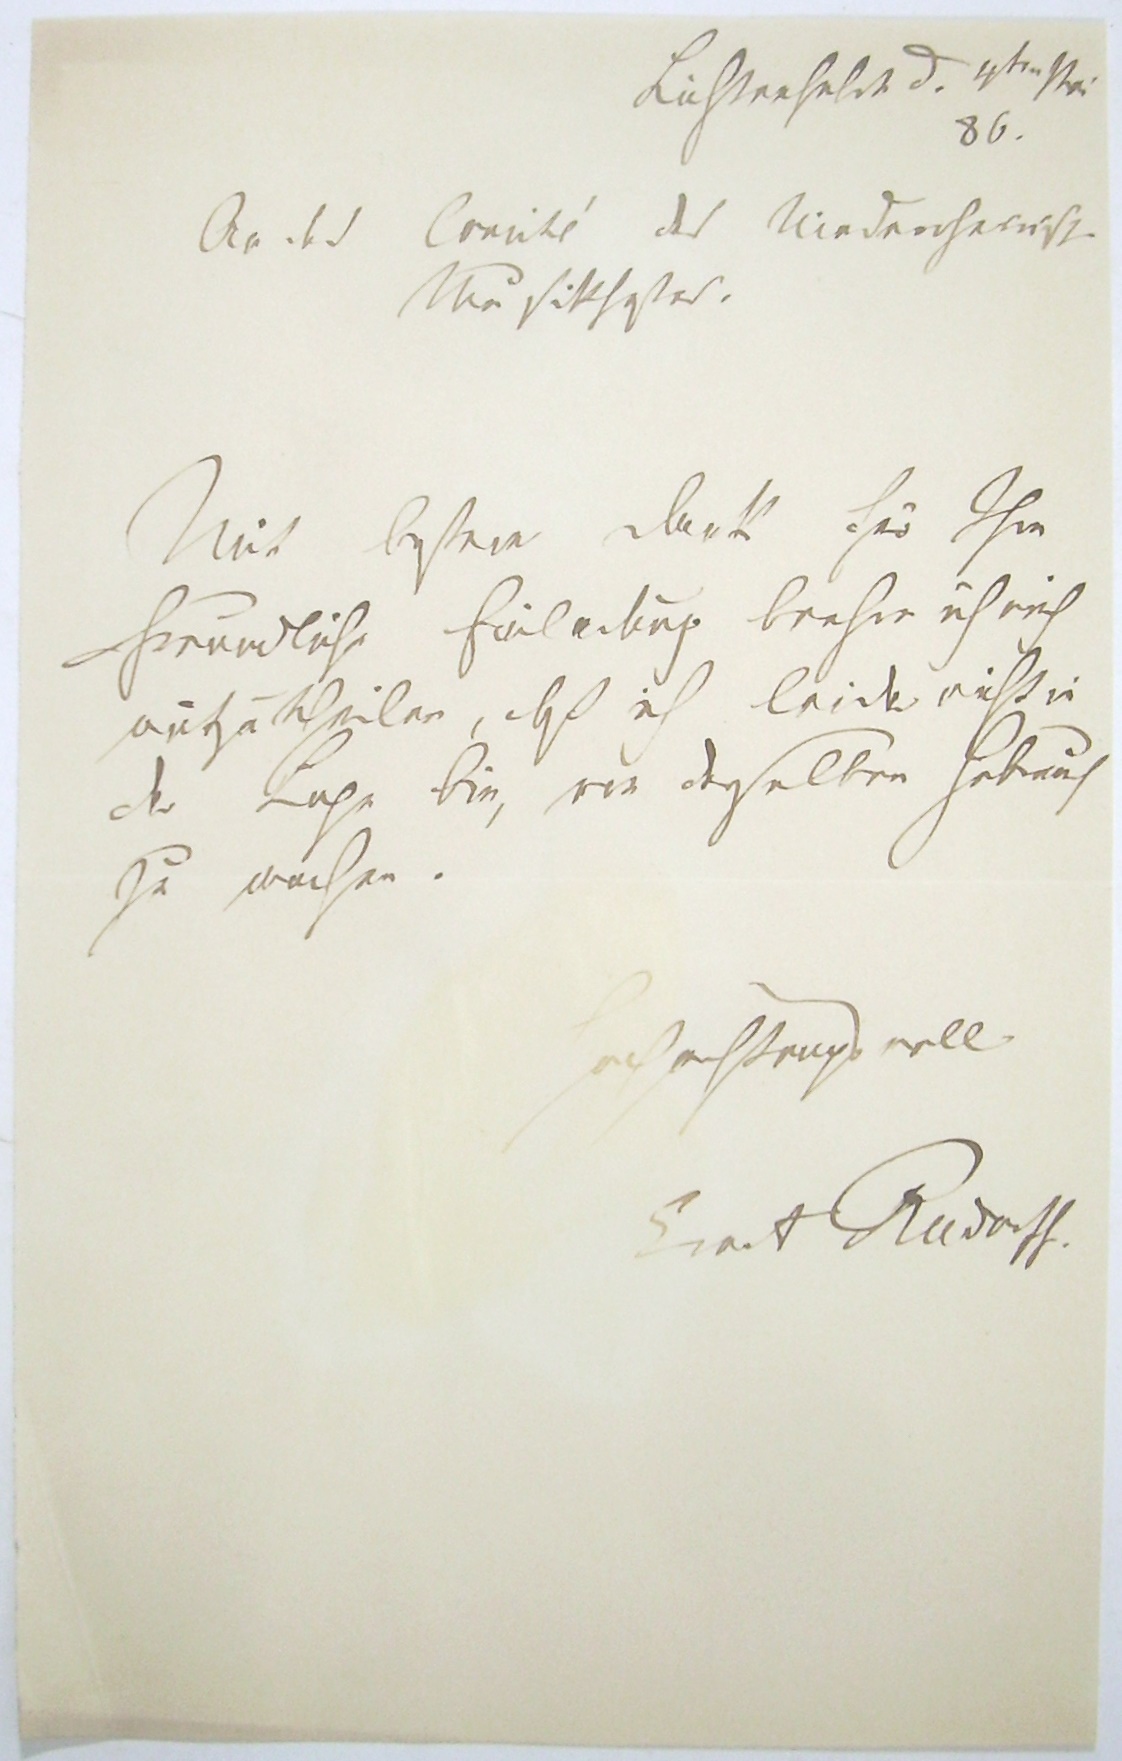 Lichterfelde d. 4ten Mai
86.
An das Comité des Niederrheinisch.
Musikfestes.
Mit bestem Dank für Ihre
freundliche Einladung beehre ich mich
mitzutheilen, daß ich leider nicht in
der Lage bin, von derselben Gebrauch
zu machen.
Hochachtungsvoll
Ernst Rudorff.